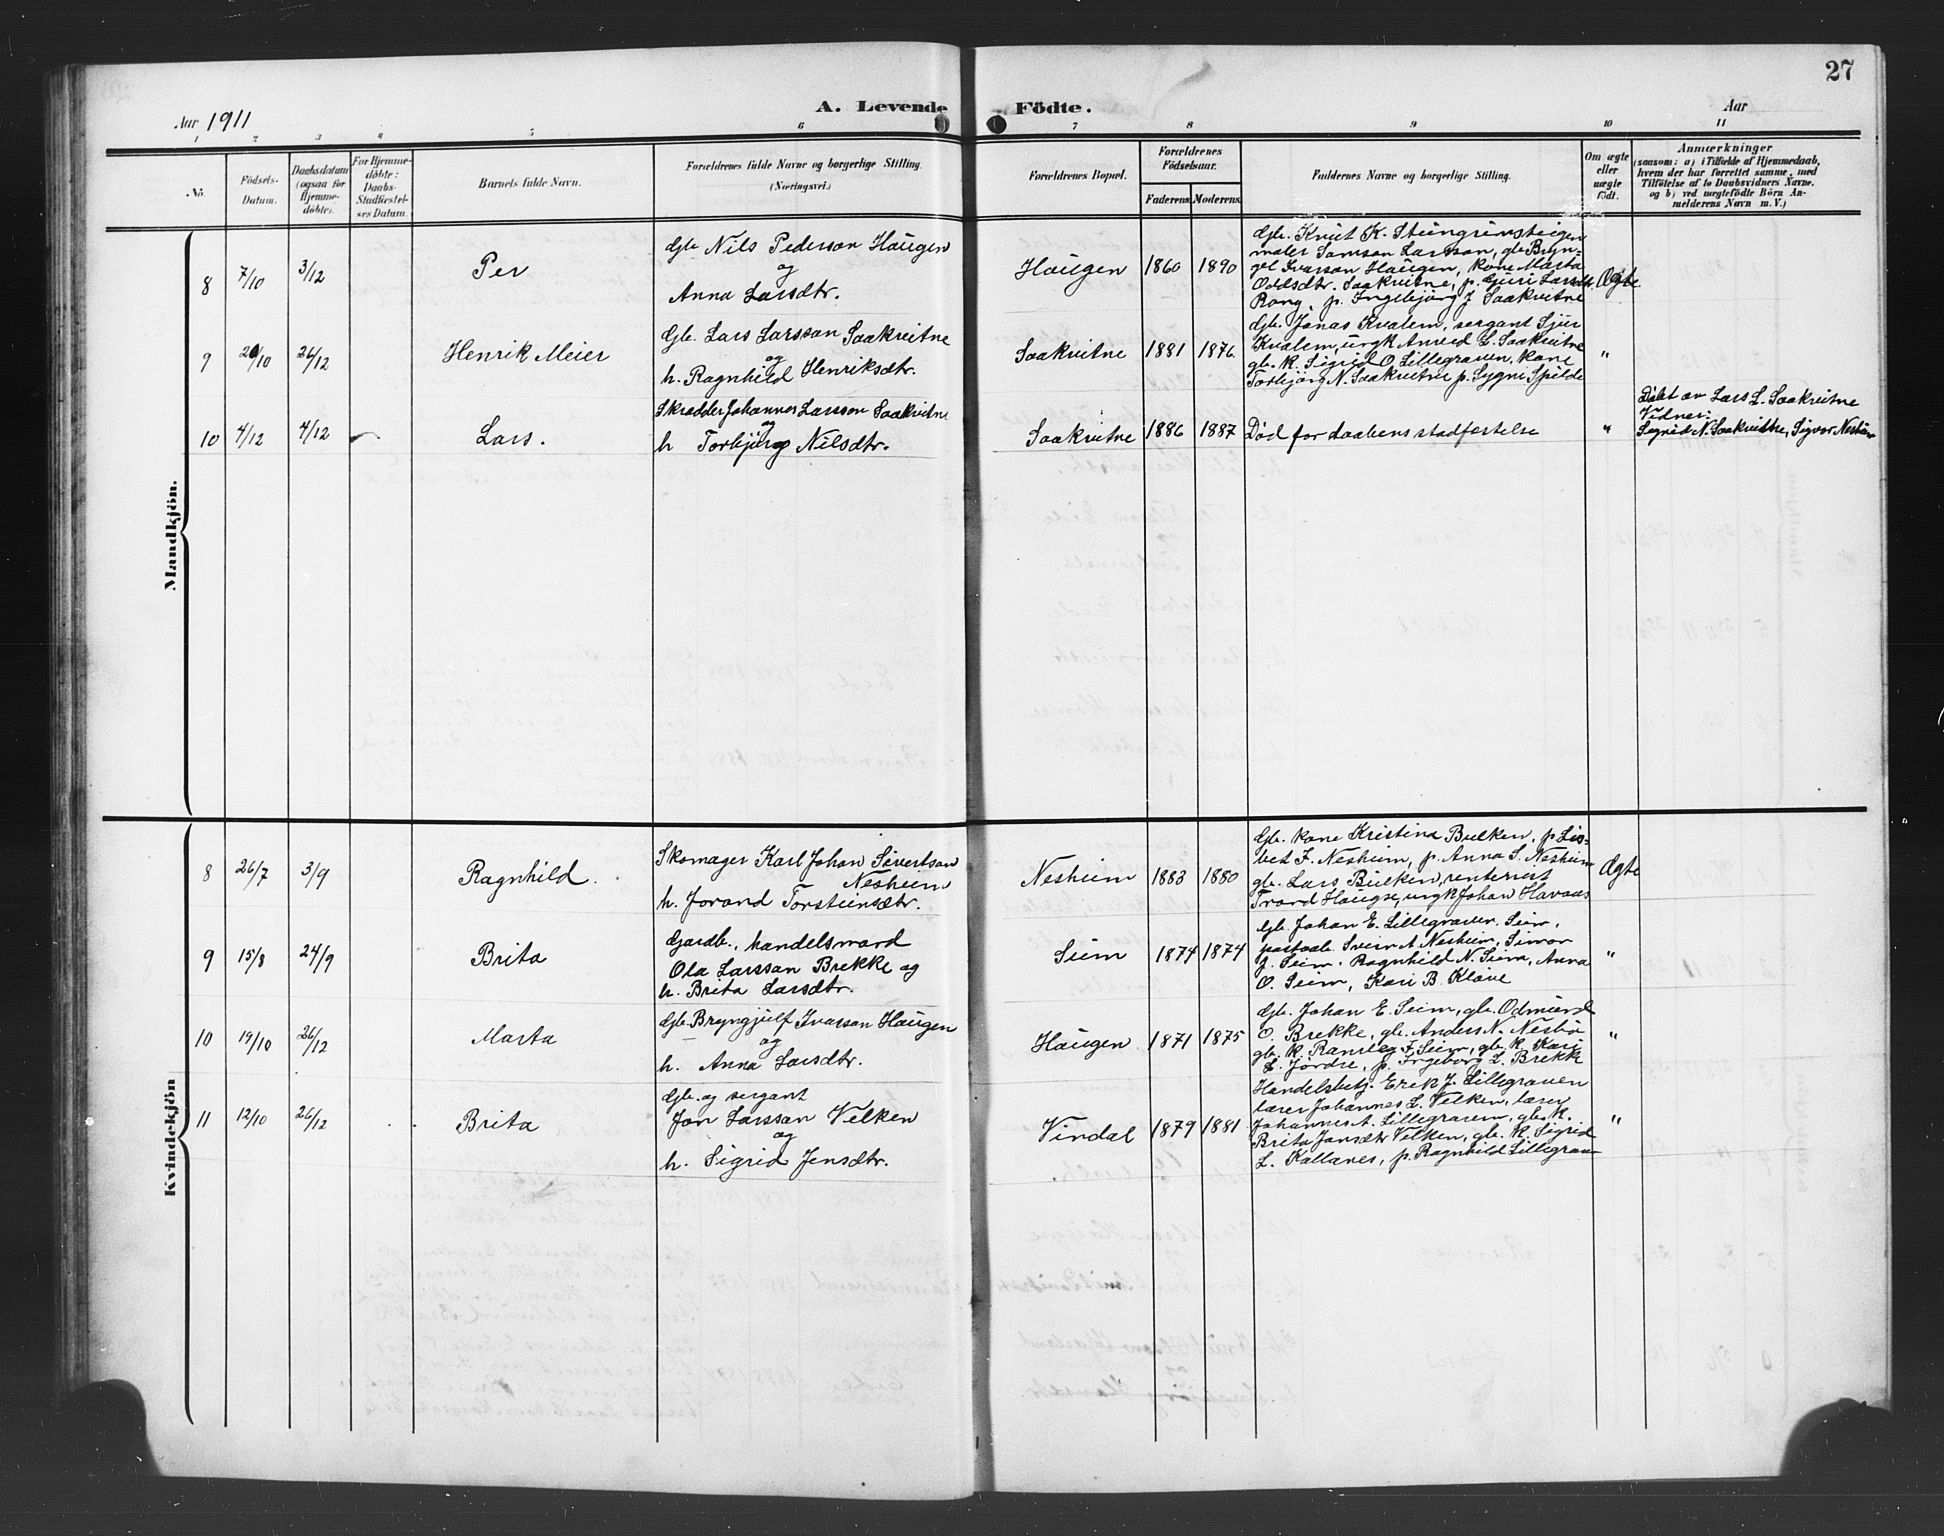 27
Aar 1911
A. Levende Födte.
Aar
1 2 3 4 5 6 7 8 9 10 11
No.
Födsels-Datum.
Daabsdatum (ogsaa for Hjemme-döbte).
For Hjemme-döbte: Daabs-Stadfæstelses Datum.
Barnets fulde Navn.
Forældrenes fulde Navne og borgerlige Stilling.
(Næringsvei.)
Forældrenes Bopæl.
Forældrenes Födselsaar.
Faderens Moderens.
Faddernes Navne og borgerlige Stilling.
Om ægte eller uægte födt.
Anmærkninger
(saasom: a) i Tilfælde af Hjemmedaab,
hvem der har forrettet samme, med
Tilföielse af to Daabsvidners Navne,
og b) ved uægtefödte Börn An-
melderens Navn m. V.)
Mandkjön.
8 7/10 3/12 Per
Gb. Nils Pederson Haugen
og
Anna Larsdtr.
Haugen 1860 1890
Gb. Knut K. Steingrimsteigen
maler Samson Larsson, gb. Bryn-
gel Ivarsson Haugen, kone Marta
Oddsdtr. Saakvitne, p. Guri Larsdt.
Rong, p. Ingebjörg J. Saakvitne
Ægte
9 20/10 26/12 Henrik Meier
Gb. Lars Larsson Saakvitne
og
h. Ragnhild Henriksdtr.
Saakvitne 1881 1876.
Gb. Jonas Kvalem, sergant Sjur
Kvalem, ungk Anved L. Saakvitne
gb. k. Sigrid O. Lillegraven, kone
Torbjörg N. Saakvitne p. Sygni Spilde
"
10 4/12 4/12 Lars.
Skrædder Johannes Larsson Saakvitne
og
h Torbjörg Nilsdtr.
Saakvitne 1886 1887 Död för daabens stadfestelse
"
Döbt av Lars L. Saakvitne
Vidner:
Sigrid N. Saakvitne, Sigvor Nesbön
Kvindekjön
8 26/7 3/9 Ragnhild.
Skomager Karl Johan Sivertson
Nesheim
h. Jorand Torsteinsdtr.
Nesheim 1883 1880
Gb. kone Kristina Bulken, p. Lis-
bet F. Nesheim, p. Anna S. Nesheim
gb. Lars Bulken, renterist
Trond Haugse, ungk Johan Havaas
Ægte
9 15/8 24/9 Brita
Gardb., handelsmand
Ola Larsson Brekke og
h. Brita Larsdtr.
Seim 1874 1874
Gb. Johan E. Lillegraven, Seim,
postaab. Svein A. Nesheim, Simon
J. Seim, Ragnhild N. Seim, Anna
O. Seim, Kari B. Kläve
"
10 19/10 26/12 Marta
Gb. Bryngjulf Ivarsson Haugen
og
h. Anna Larsdtr.
Haugen 1871 1875
Gb. Johan E. Seim, gb. Odmund
O. Brekke, gb. Anders N. Nesbö
gb. k. Ranveig J. Seim, gb. k. Kari
L. Jördre, p. Ingeborg L. Brekk
"
11 12/10 26/12 Brita
Gb. og sergant
Jon Larsson Velken
og
h. Sigrid Jensdtr.
Vindal 1879 1881
Handelsbetj. Erik J. Lillegraven
lærer Johannes L. Velken, lærer
Johannes A. Lillegraven, gb. k.
Brita Jonsdtr Velken, gb. k. Sigrid
L. Kollanes, p. Ragnhild Lillegrav
"